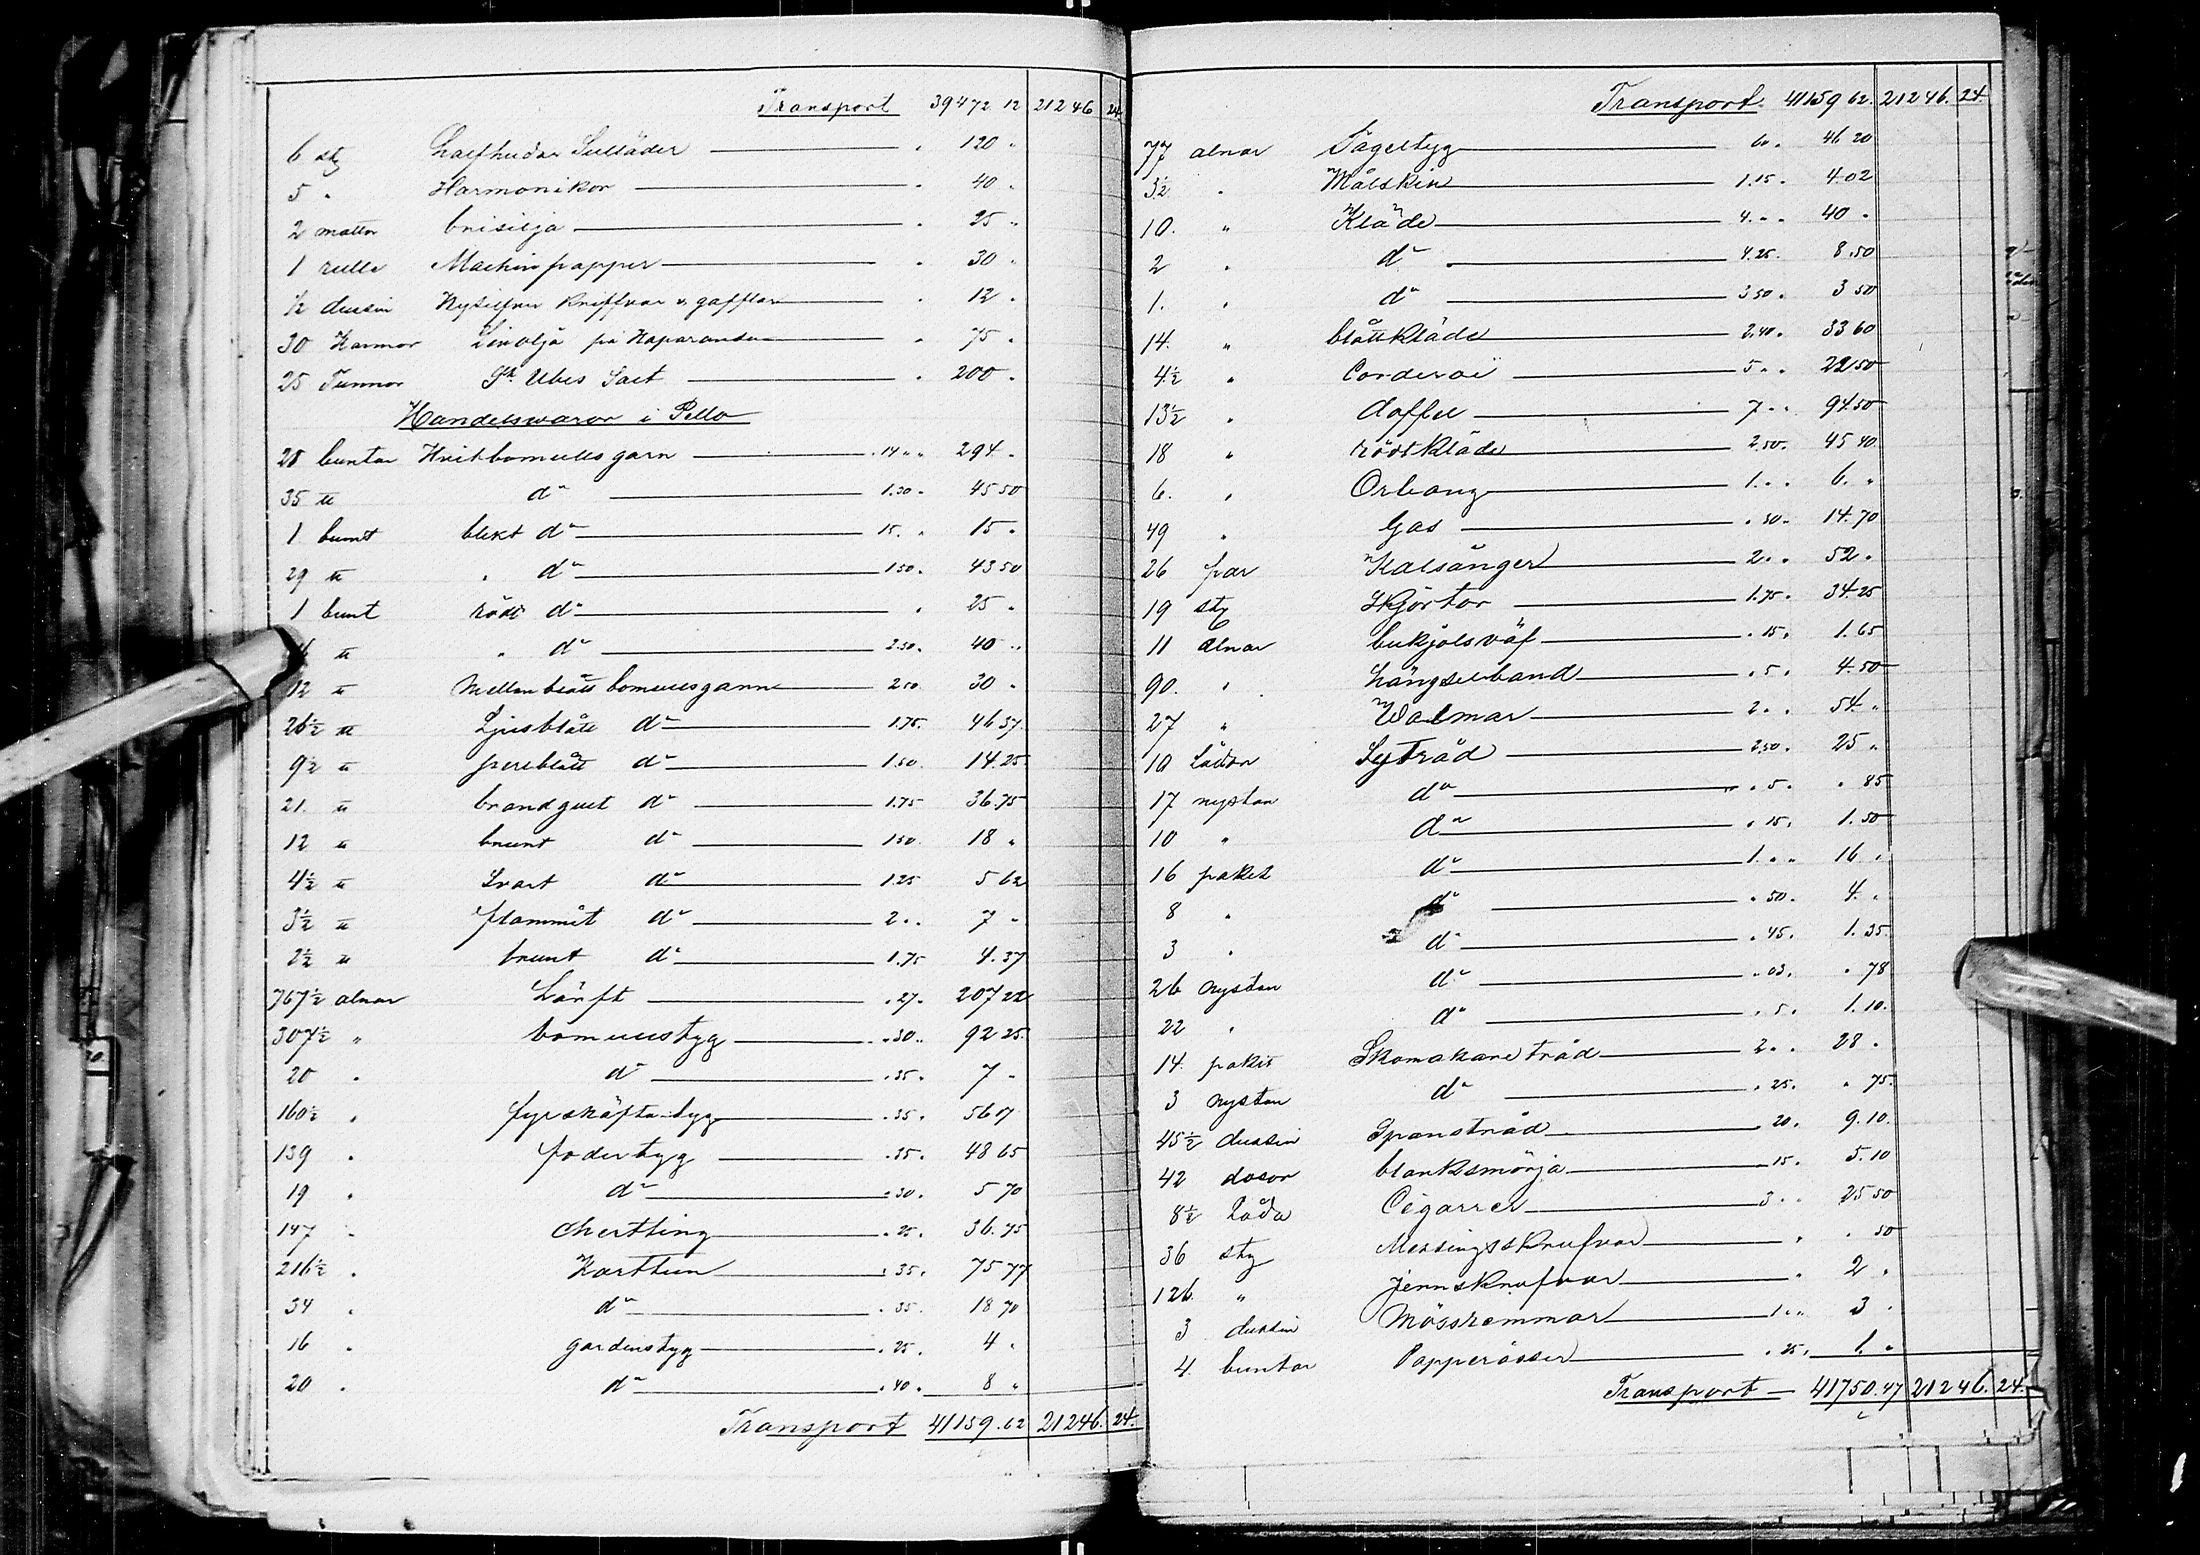 Transport 39472 12 21246 24
6 sty halfhudar Sulläder " 120 "
5 " Harmonikor " 40 "
2 mattor brisilja " 25 "
1 rulle Machinpapper " 30 "
1/2 dussin Nysilfver kniffvar o. gafflar " 12 "
30 Kannor Linolja på Haparanda " 75 "
25 Tunnor St Ubes Salt " 200 "
Handelswaror i Pello
buntar Hvitbomullsgarn 14 " " 294 "
35 ℔ do 1.30 " 45 50
1 bunt blekt do 15. " 15 "
29 ℔ " do 1 50 " 43 50
1 bunt rödt do " 25 "
℔ " do 2.50 " 40 "
12 ℔ Mellanblått bomullsgarn 2 50 30 "
26 1/2 ℔ Ljusblått do 1.75 46 37
9 1/2 ℔ perlblått do 1.50 14.25
21. ℔ brandgult do 1.75 36.75
12 ℔ brunt do 1 50 18 "
4 1/2 ℔ Svart do 1.25 5 62
3 1/2 ℔ flammit do 2 " " 7 "
2 1/2 ℔ brunt do 1.75 4.37
767 1/2 alnar Lärft " 27 " 207 22
307 1/2 " bomullstyg " 30 " 92 25
20 " do " 35 " 7 "
160 1/2 " fyrskäfta-tyg " 35 " 56 17
139 " fodertyg " 35 " 48 65
19 " do " 30 " 5 70
147 " chertting " 25 " 36.75
216 1/2 " Karttun " 35 " 75 77
34 " do 18 70
16 " gardinstyg " 25 " 4 "
20 " do " 40 " 8 "
Transport 41159.62 21246. 24.
Transport 41159 62. 21246. 24.
77 alnar Sägeltyg 60 " 46 20
3 1/2 " Målskin 1.15 " 4.02
10. " Kläde 4 " " 40 "
2 " do 4.25 " 8.50
1. " do 3 50 " 3 50
14. " blåttkläde 2.40 " 33 60
4 1/2 " Corderoi 5 " " 22 50
13 1/2 " doffel 7 " " 94.50
18 " rödtkläde 2.50 " 45 40
6. " Orleang 1 " " 6. "
49 " Gas " 30 " 14.70
26 par Kalsånger 2 " " 52 "
19 sty Skjortor 1.75 " 34.25
11 alnar bukjolsväf " 15 " 1.65
90. " hängselband " 5 " 4.50
27 " Walmar 2 " " 54 "
10 Lådor Sytråd 2.50 " 25 "
17 nystan do " 5 " " 85
10 " do " 15 " 1.50
16 paket do 1 " " 16 "
8 " do " 50 " 4. "
3 " do " 45 " 1.35
26 nystan do " 03 " " 78
22 " do " 5 " 1.10.
14. paket Skomakaretråd 2 " " 28 "
3 nystan do " 25 " " 75
45 1/2 dussin Spanstråd 20 " 9.10.
42 dosor blanksmörja 15 " 5.10
8 1/2 Låda Cigarrer 3 " " 25 50
36 sty Messingsskrufvar " " 50
126. " Jernskrufvar " 2 "
3 dussin Mössremmar 1 " " 3 "
4 buntar Papperåsser " 25 " 1. "
Transport 41750.47 21246. 24.